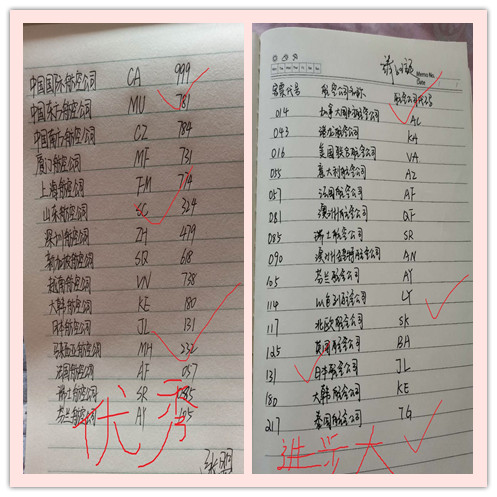 中国国际航空公司 CA 999
中国东方航空公司 MU 781
中国南方航空公司 CZ 784
厦门航空公司 MF 731
上海航空公司 FM 774
山东航空公司 SC 324
深圳航空公司 ZH 479
新加坡航空公司 SQ 618
越南航空公司 VN 738
大韩航空公司 KE 180
日本航空公司 JL 131
马来西亚航空公司 MH 232
法国航空公司 AF 057
瑞士航空公司 SR 085
芬兰航空公司 AY 105
优秀
Memo No.
Date
Mo Tu We Th Fr Sa Su
票代号 航空公司名称 航空公司代号
014 加拿大国际航空公司 AC
043 港龙航空公司 KA
016 美国联合航空公司 VA
055 意大利航空公司 AZ
057 法国航空公司 AF
081 澳洲航空公司 QF
085 瑞士航空公司 SR
090 澳洲安捷特航空公司 AN
105 芬兰航空公司 AY
114 以色列航空公司 LY
117 北欧航空公司 SK
125 英国航空公司 BA
131 日本航空公司 JL
180 大韩航空公司 KE
217 泰国航空公司 TG
进步大